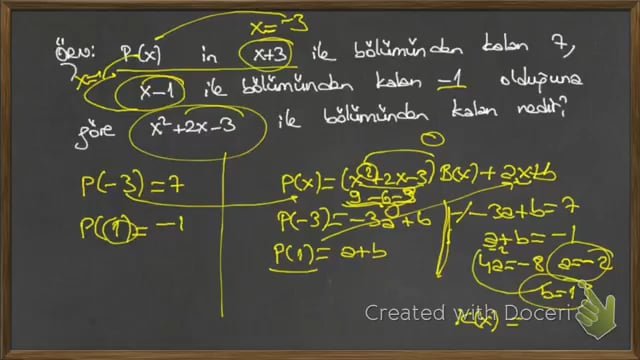 x=-3
Örn: P(x) in x+3 ile bölümünden kalan 7,
x=1
x-1 ile bölümünden kalan -1 olduğuna
göre x²+2x-3 ile bölümünden kalan nedir?
P(-3)=7
P(1)=-1
0
P(x)=(x²+2x-3)B(x)+ax+b
9-6-3
P(-3)=-3a+b
P(1)=a+b
-3a+b=7
a+b=-1
4a=-8 a=-2
b=1
K(x)=
Created with Doceri